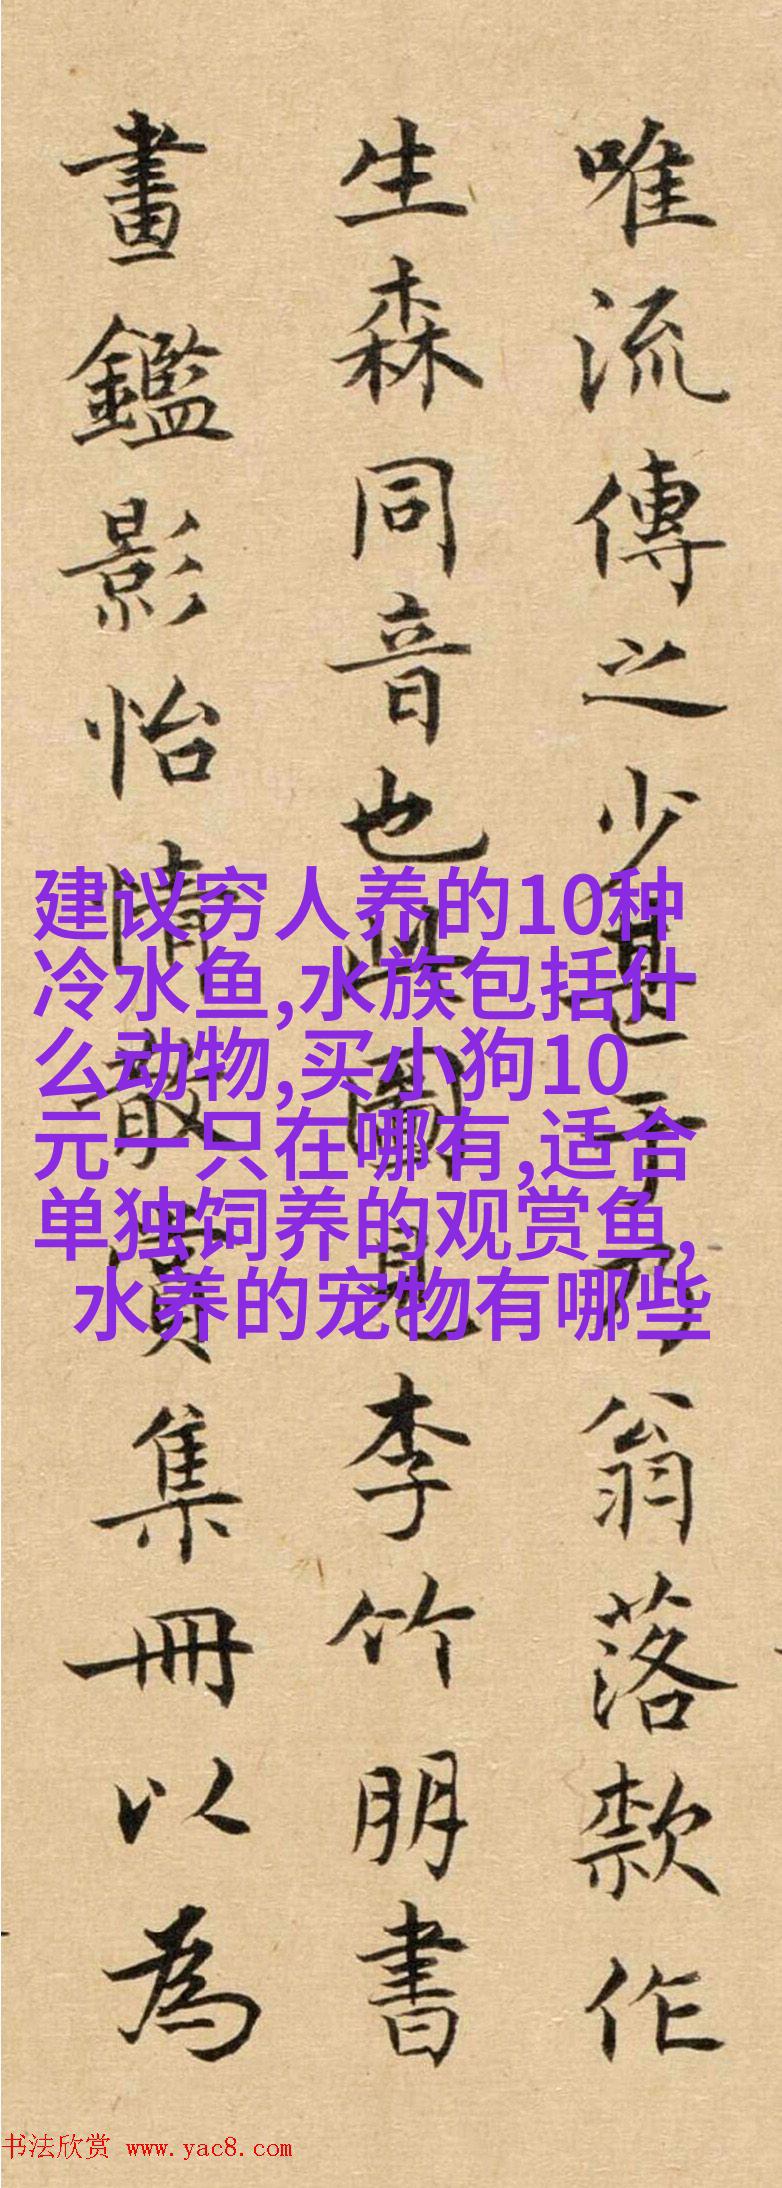 唯流傳之少甚乃翁落款作
生森同音也此圖見李竹朋書
畫鑑影怡情散賞集冊以為
建议穷人养的10种
冷水鱼,水族包括什
么动物,买小狗10
元一只在哪有,适合
单独饲养的观赏鱼,
水养的宠物有哪些
书法欣赏 www.yac8.com